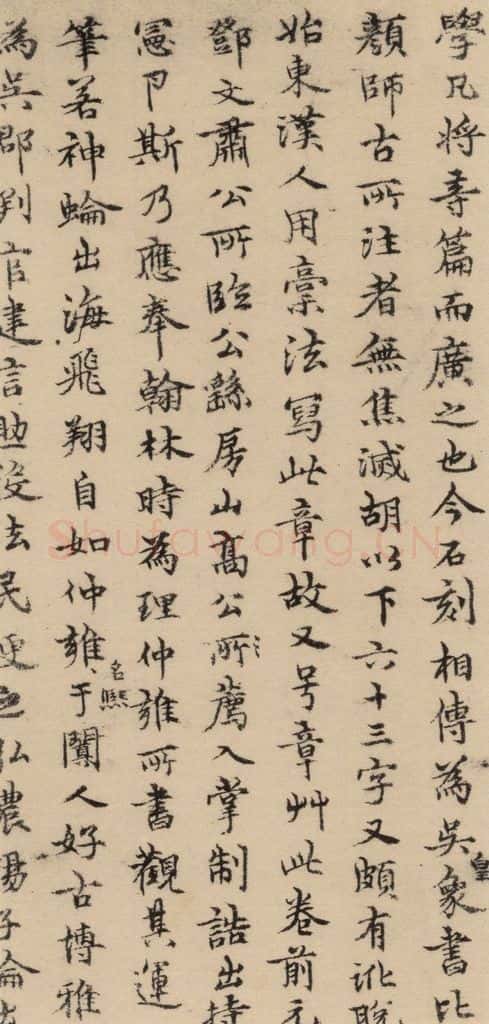 學凡將等篇而廣之也今石刻相傳為吳皇象書比
顏師古所注者無焦滅胡以下六十三字又頗有訛脫
始東漢人用稾法寫此章故又号章艸此卷前元
鄧文肅公所臨公繇房山高公所薦入掌制誥出持
憲卩斯乃應奉翰林時為理仲雍所書觀其運
筆若神蜦出海飛翔自如仲雍名熙于闐人好古博雅
為吳郡判官建言助役法民便之弘農楊子
Shufawang.CN